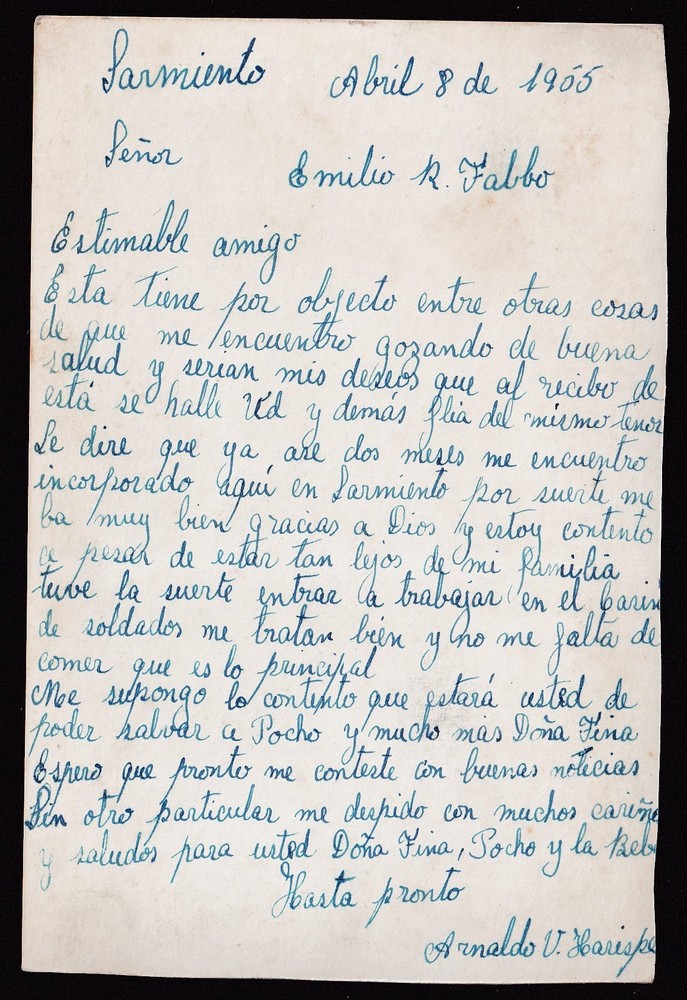 Sarmiento Abril 8 de 1955
Señor
Emilio R. Fabbo
Estimable amigo
Esta tiene por objecto entre otras cosas
de que me encuentro gozando de buena
salud y serian mis deseos que al recibo de
está se halle Ud y demás flia del mismo tenor
Le dire que ya are dos meses me encuentro
incorporado aquí en Sarmiento por suerte me
ba muy bien gracias a Dios y estoy contento
a pesar de estar tan lejos de mi familia
tuve la suerte entrar a trabajar en el Casin
de soldados me tratan bién y no me falta de
comer que es lo principal
Me supongo lo contento que estará usted de
poder salvar a Pocho y mucho mas Doña Fina
Espero que pronto me conteste con buenas noticias
Sin otro particular me despido con muchos cariño
y saludos para usted Doña Fina, Pocho y la Beb
Hasta pronto
Arnaldo V. Harispe